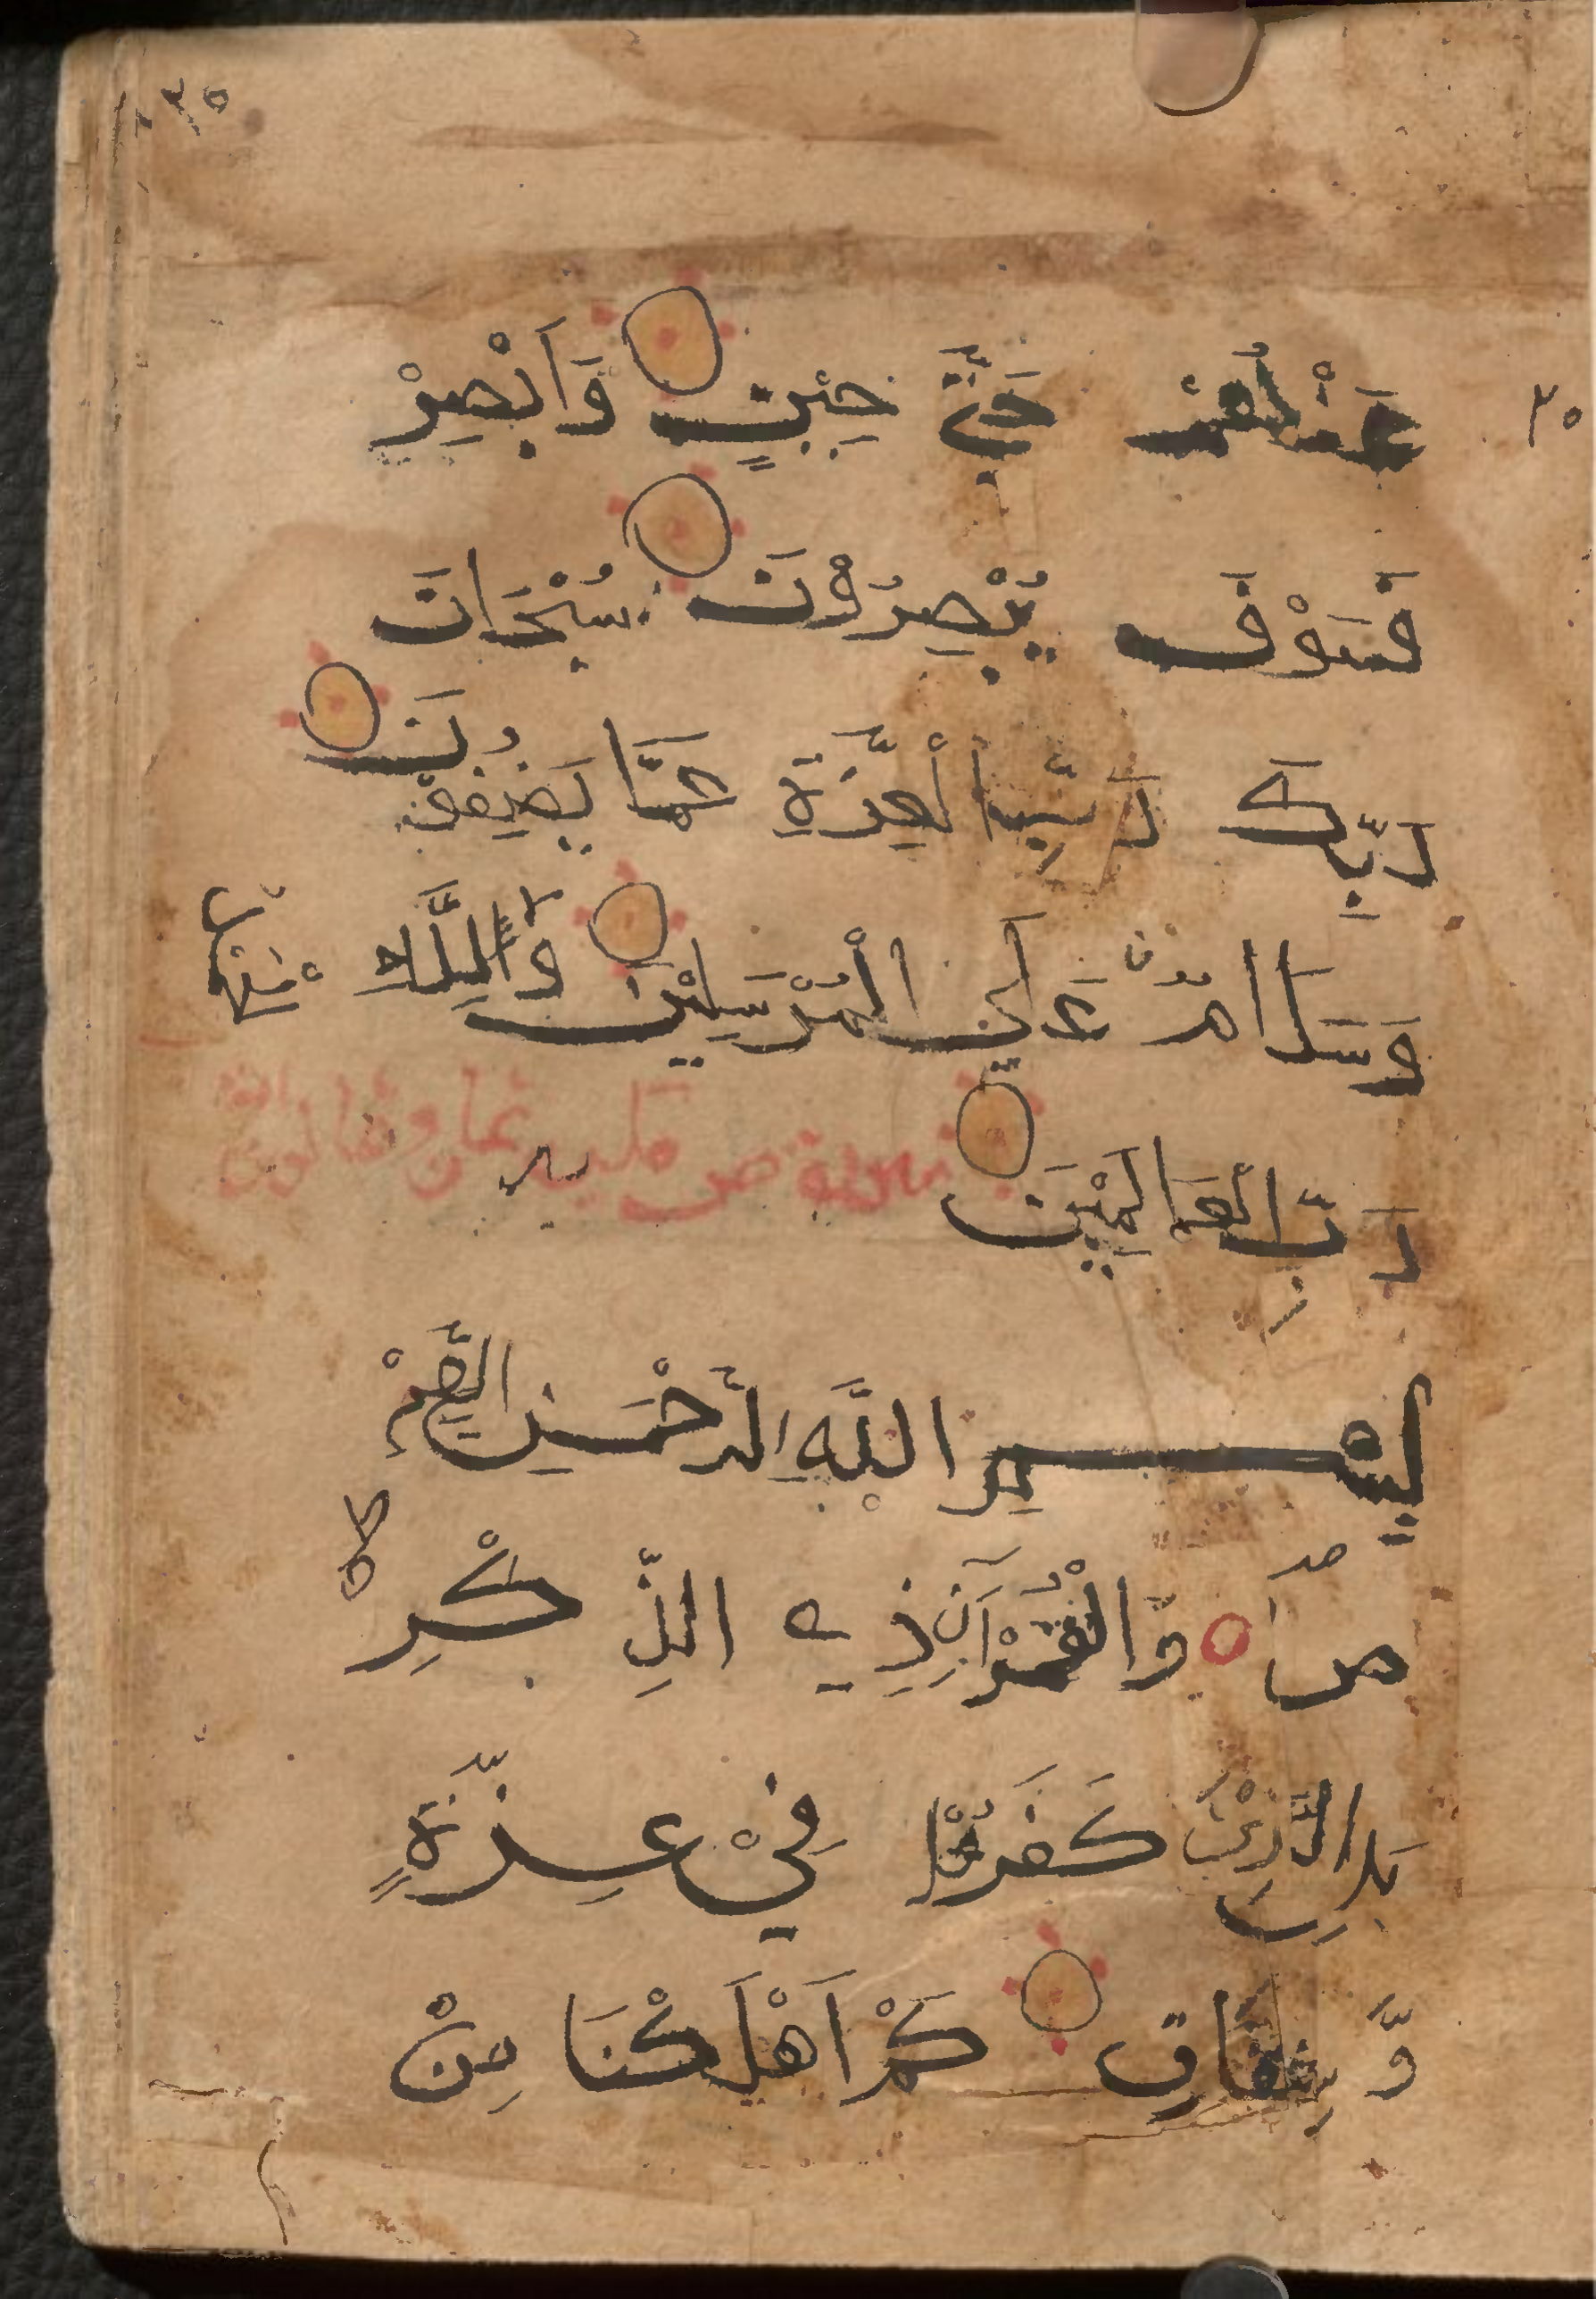 ٣٥
٣٥
عَنْهُمْ حَتّٰى حِيْنٍ وَاَبْصِرْ
فَسَوْفَ يُبْصِرُوْنَ سُبْحَانَ
رَبِّكَ رَبِّ الْعِزَّةِ عَمَّا يَصِفُوْنَ
وَسَلَامٌ عَلَى الْمُرْسَلِيْنَ وَالْحَمْدُ لِلّٰهِ
رَبِّ الْعَالَمِيْنَ سورة ص مكية ثمان وثمانون اية
بِسْمِ اللَّهِ الرَّحْمَنِ الرَّحِيْمِ
ص وَالْقُرْآنِ ذِي الذِّكْرِ
بَلِ الَّذِيْنَ كَفَرُوْا فِيْ عِزَّةٍ
وَّ شِقَاقٍ كَمْ اَهْلَكْنَا مِنْ